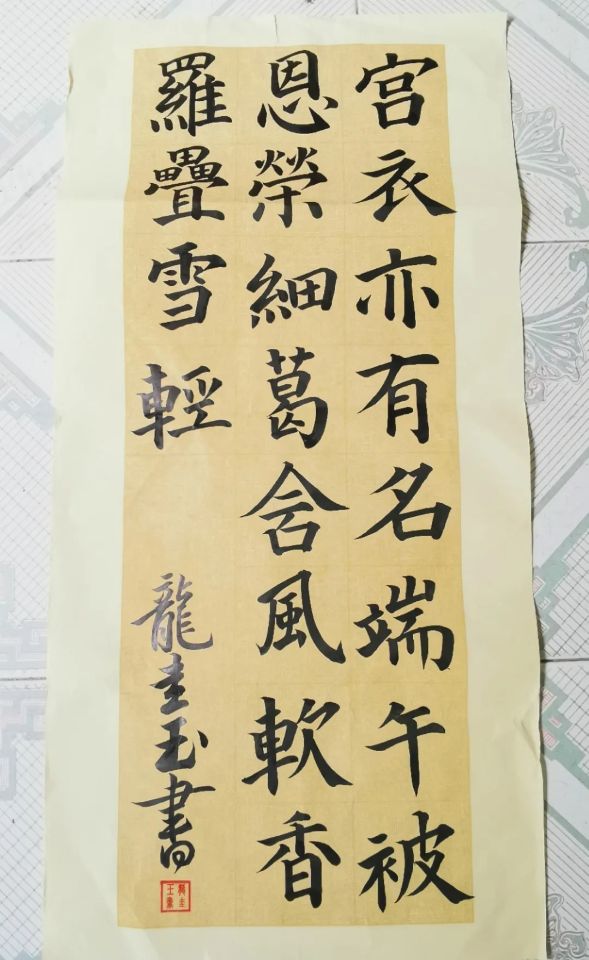 宫衣亦有名端午被
恩榮細葛含風軟香
羅疊雪輕
龍圭玉書